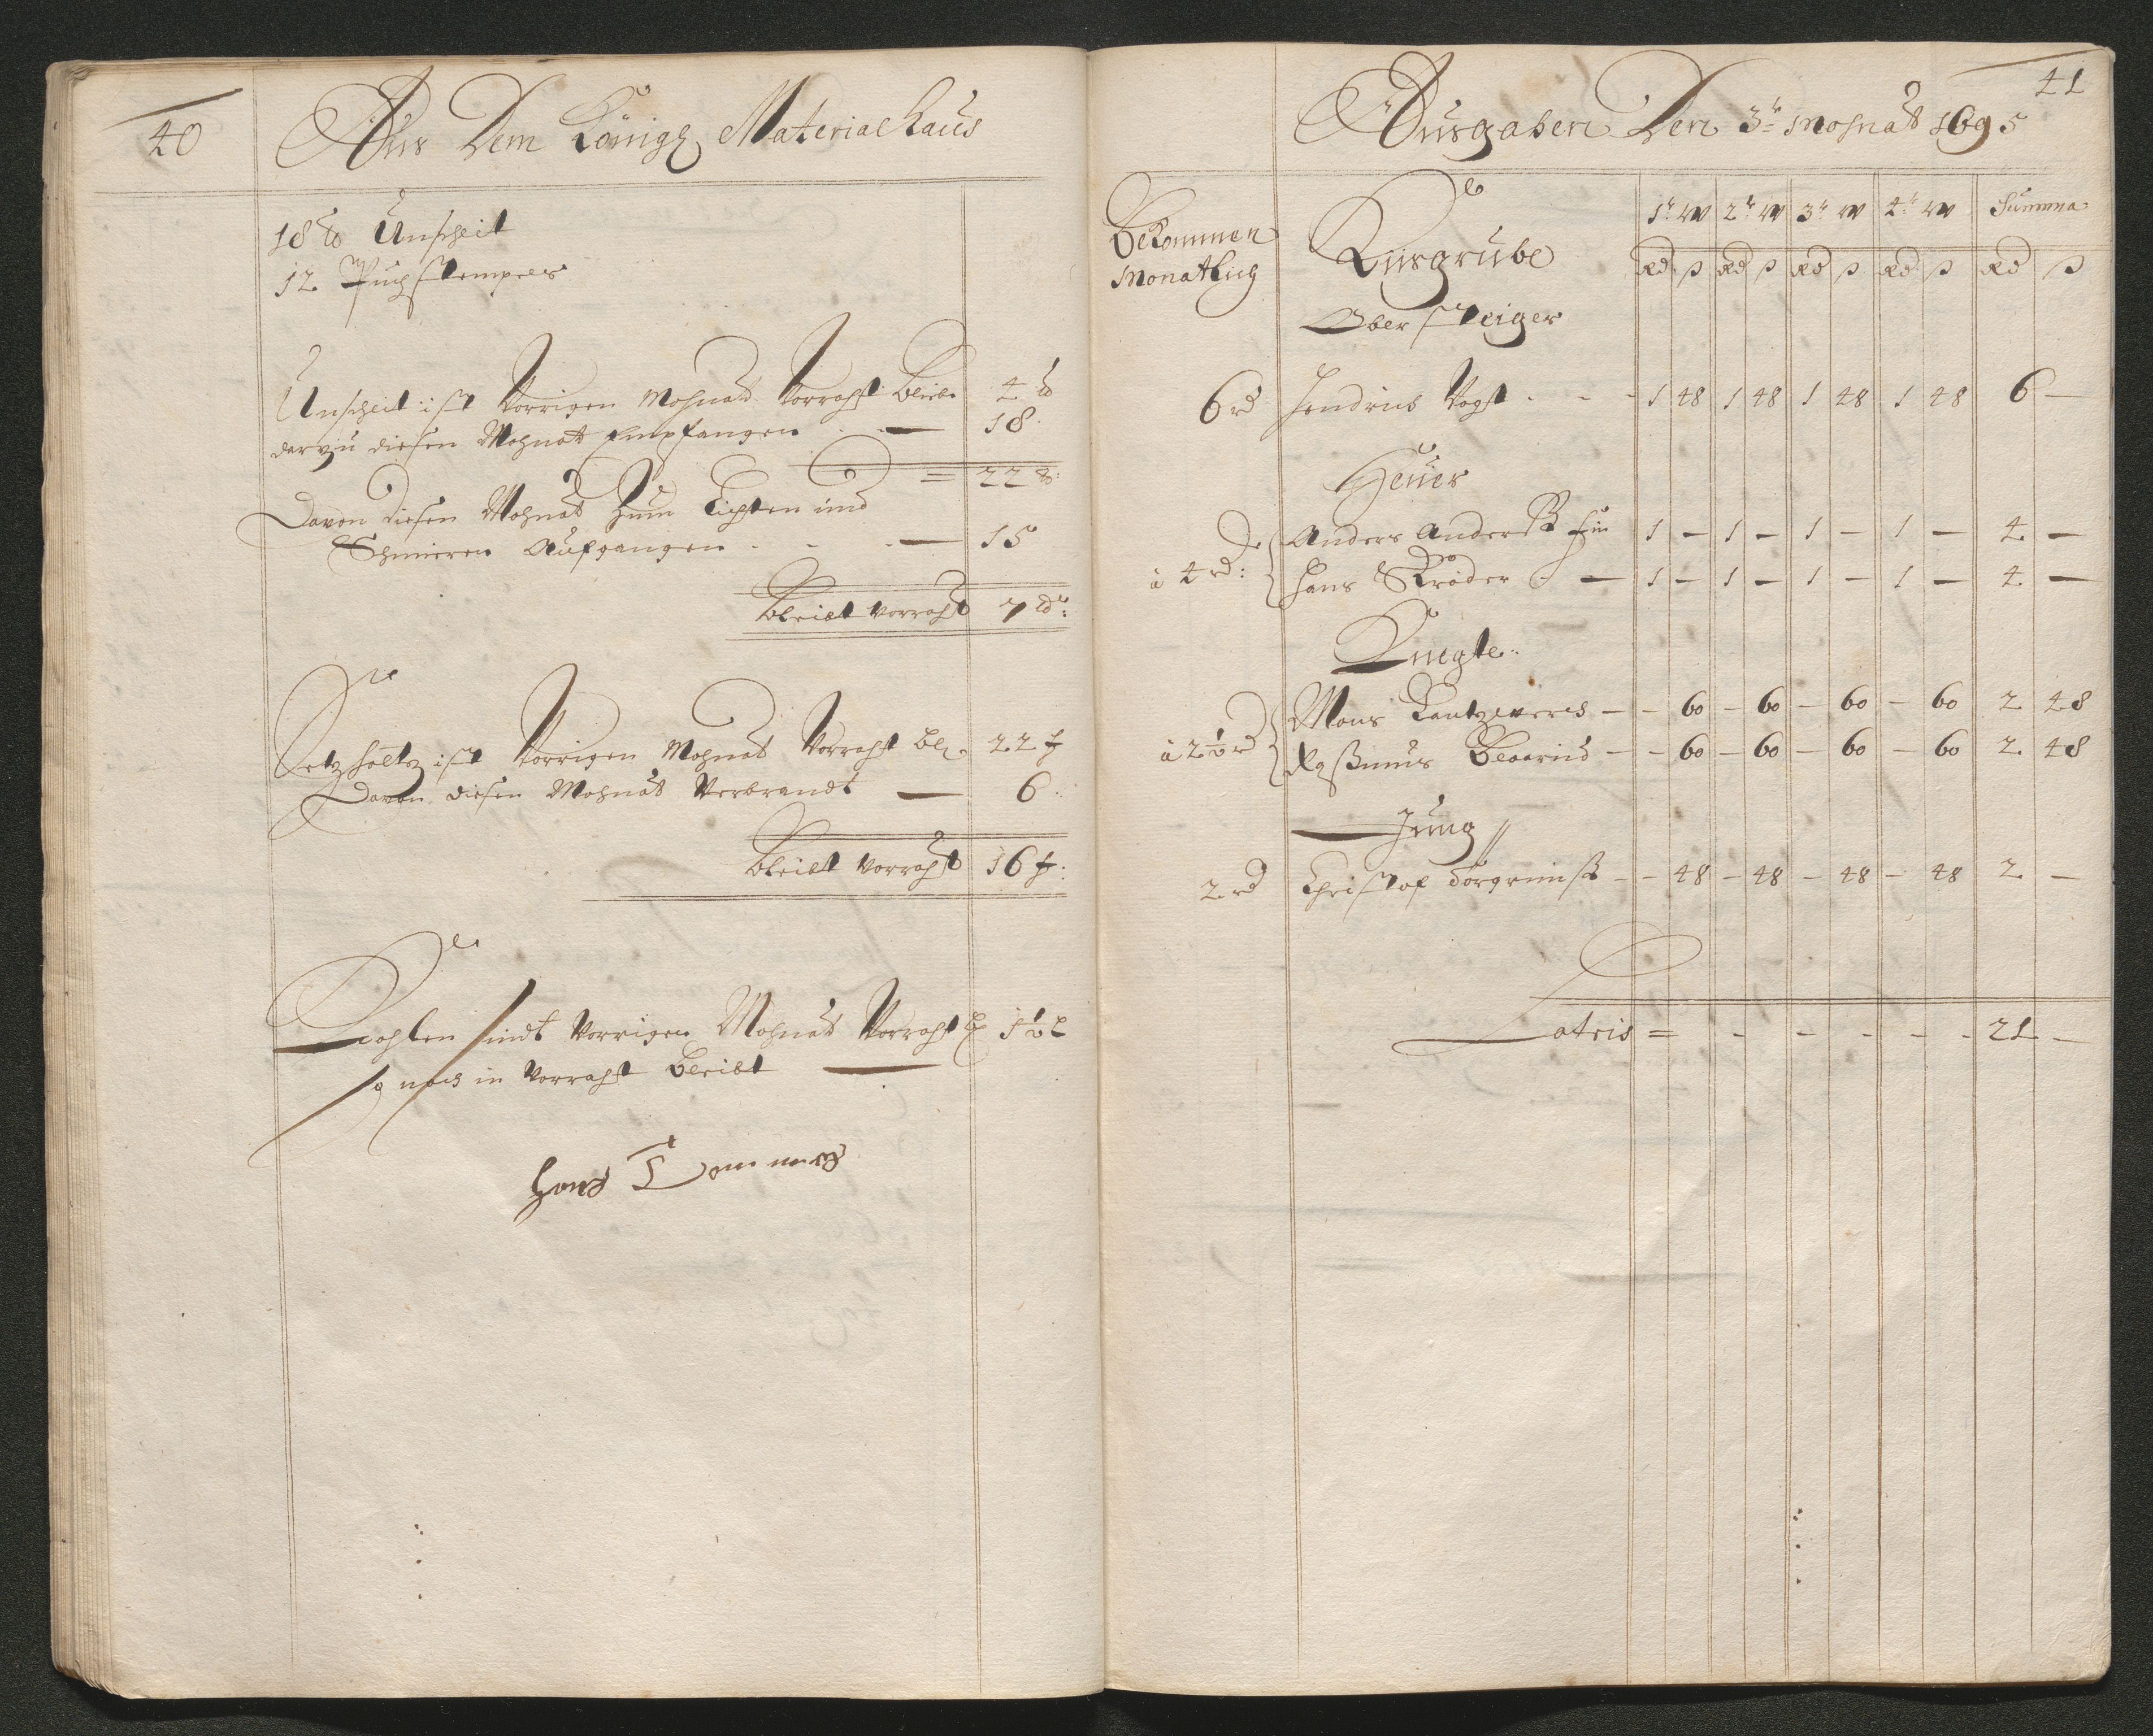 40
Aus Dem Königl Material haus
18 ℔ Unscheit
12 Puchstempeler
Unscheit ist Vorrigen Mohnat Vorraht bliebe 4 ℔
darzu diesen Mohnat Empfangen — 18
= 22 ℔:
Davon diesen Mohnat zum Lichten und
Schmieren Aufgangen - - — 15
bleibt vorraht 7 ℔:
Setzholtz ist Vorrigen Mohnat Vorraht bl 22 f
Davon diesen Mohnat Verbrandt — 6
bleibt vorraht 16 f:
Kohlen sindt Vorrigen Mohnat Vorraht 1½ L
so noch in Vorraht bleibt —
Hans
41
Ausgaben Den 3te Mohnat 1695
Bekommen Monatlich
Kiisgrube
1te W 2te W 3te W 4te W Summa
Rd ß Rd ß Rd ß Rd ß Rd ß
Ober Steiger
6 rd Hendrich Vogt - - - 1 48 1 48 1 48 1 48 6 —
Heüer
à 4 rd: Anders Anderß Fin 1 — 1 — 1 — 1 — 4 —
Hans Ströder — 1 — 1 — 1 — 1 — 4 —
Knegte
à 2½ rd Mons — - 60 - 60 - 60 - 60 2 48
Raßmus — - 60 - 60 - 60 - 60 2 48
Jung
2 rd Christof Torgrimß - - 48 - 48 - 48 - 48 2 —
Latris = - - - - - 21 —